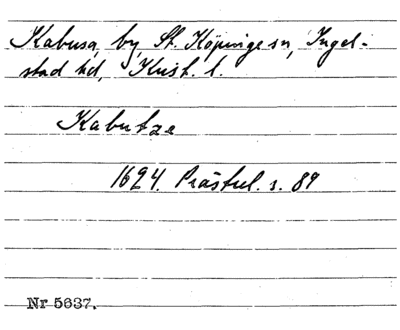 Kabusa, by, St. Köpinge sn, Ingel-
stad hd, Krist. l.
Kabutze
1624. Prästrel. s. 89
Nr 5637.